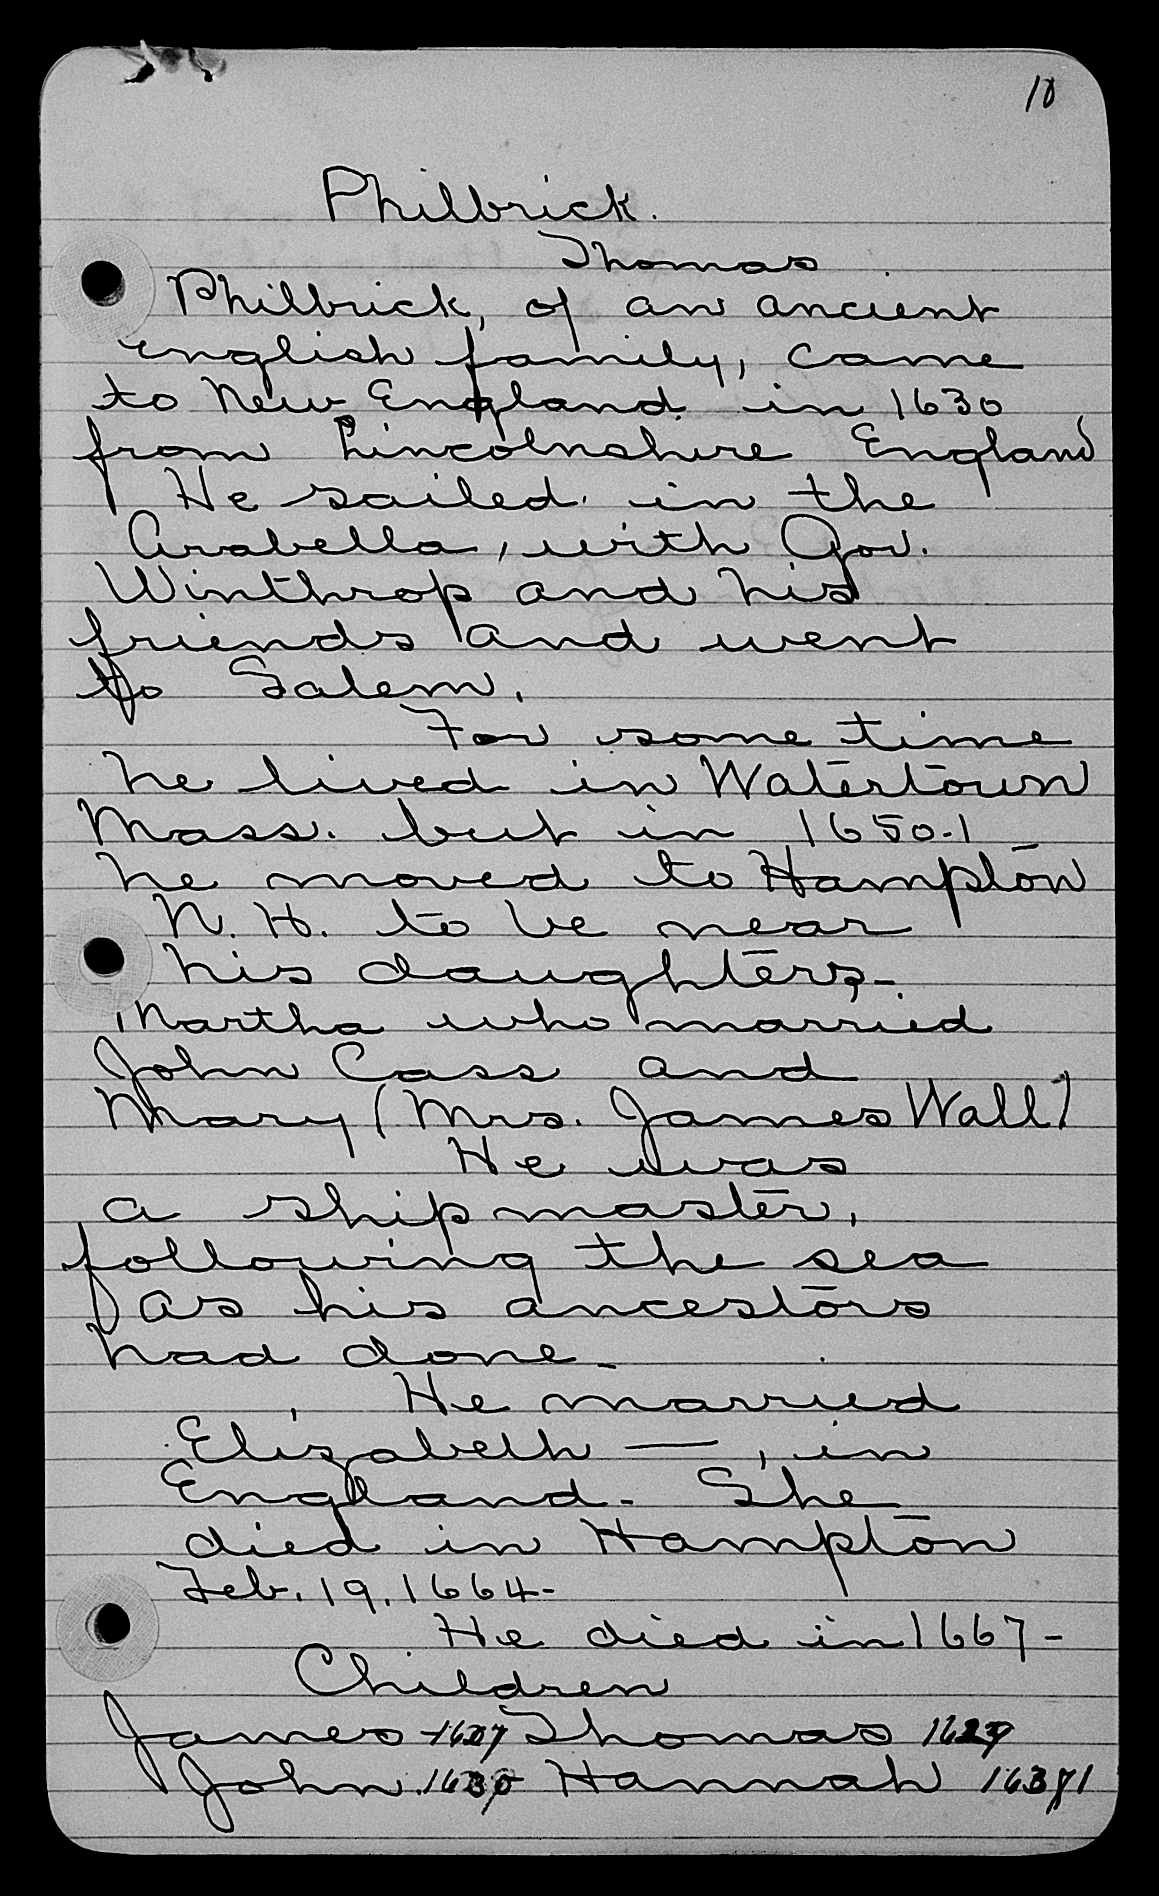 10
Philbrick.
Thomas
Philbrick, of an ancient
English family, came
to New England in 1630
from Lincolnshire England
He sailed in the
Arabella, with Gov.
Winthrop and his
friends and went
to Salem.
For some time
he lived in Watertown
Mass. but in 1650-1
he moved to Hampton
N. H. to be near
his daughters-
Martha who married
John Cass and
Mary (Mrs. James Wall)
He was
a shipmaster,
following the sea
as his ancestors
had done-
He married
Elizabeth —, in
England- She
died in Hampton
Feb. 19. 1664-
He died in 1667-
Children
James Thomas
John Hannah